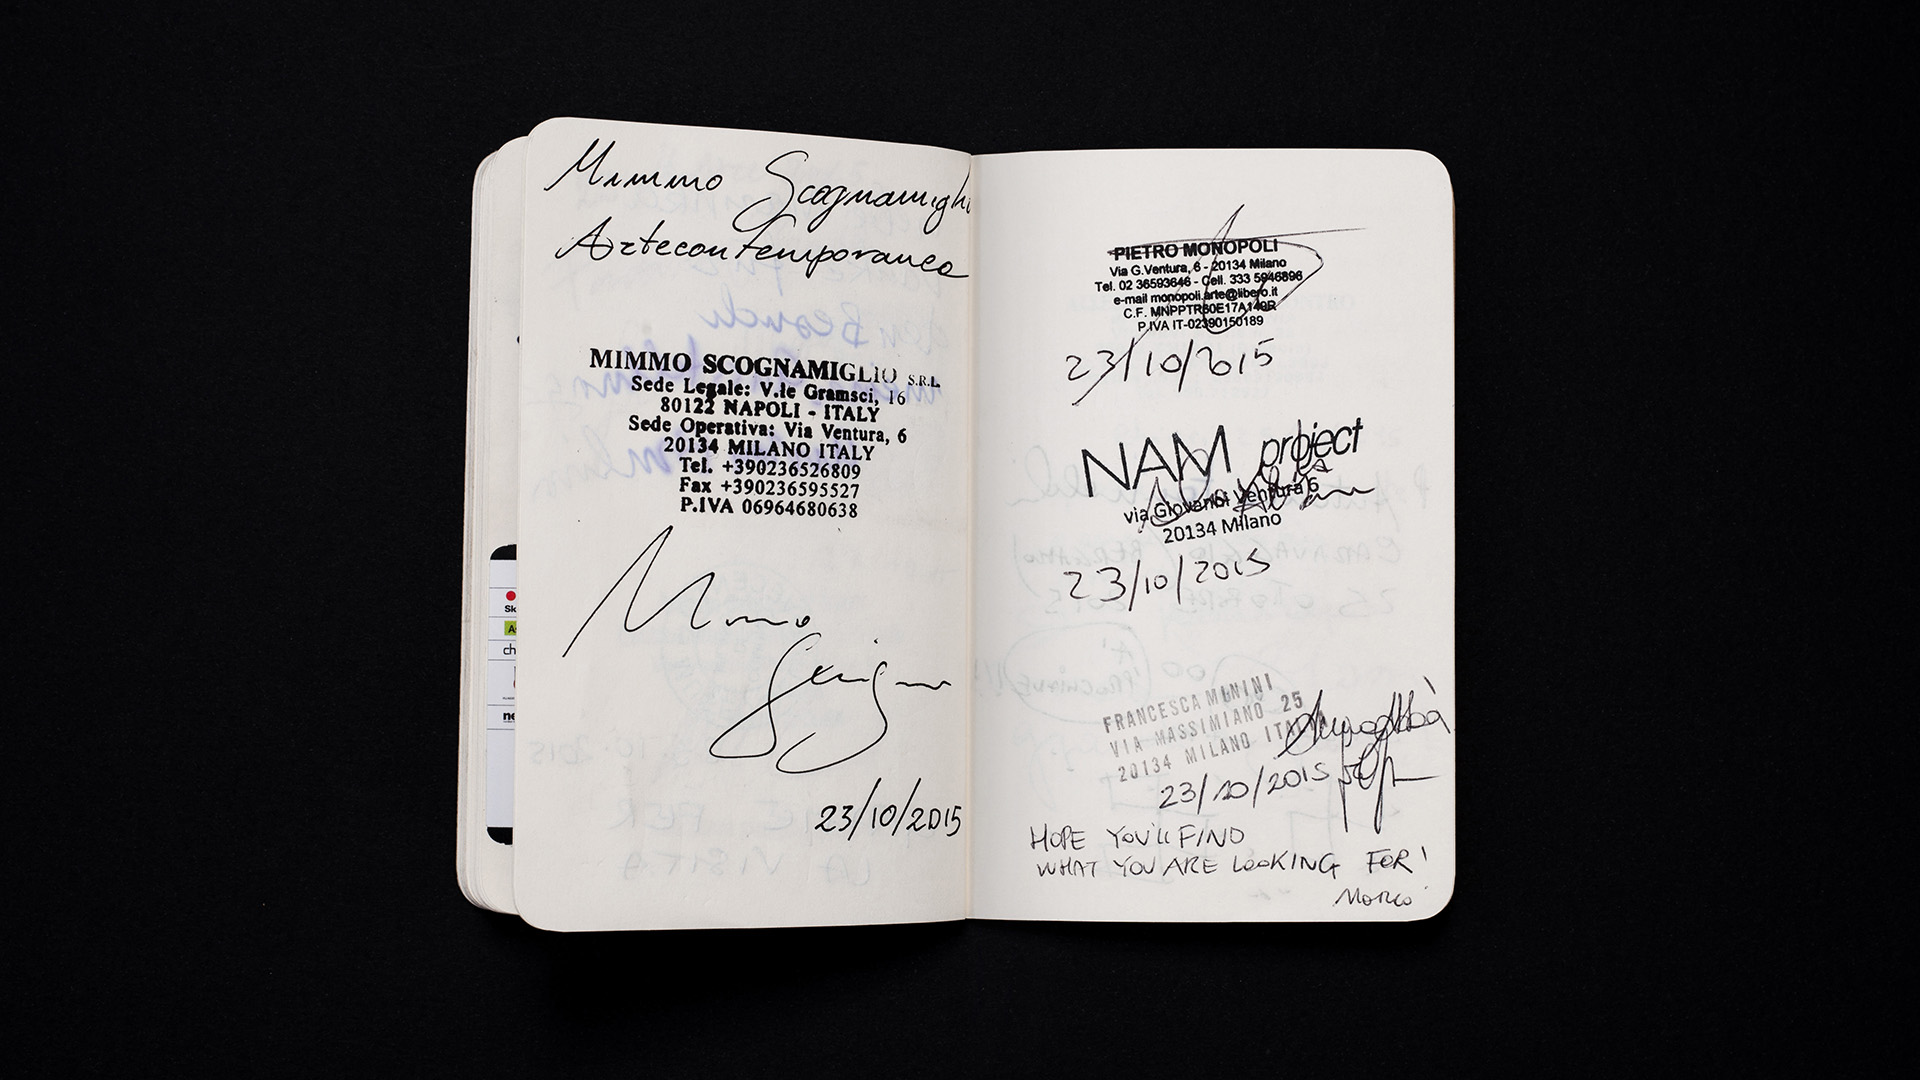 Mimmo Scognamigli
Artecontemporanea
MIMMO SCOGNAMIGLIO S.R.L.
Sede Legale: V.le Gramsci, 16
80122 NAPOLI - ITALY
Sede Operativa: Via Ventura, 6
20134 MILANO ITALY
Tel. +390236526809
Fax +390236595527
P.IVA 06964680638
Mimmo
23/10/2015
PIETRO MONOPOLI
Via G.Ventura, 6 - 20134 Milano
Tel. 02 36593646 - Cell. 333 5946896
e-mail monopoli.arte@libero.it
C.F. MNPPTR60E17A149R
P.IVA IT-02390150189
23/10/2015
NAM project
via Giovanni Ventura 6
20134 Milano
23/10/2015
FRANCESCA MININI
VIA MASSIMIANO 25
20134 MILANO ITALIA
23/10/2015
HOPE YOU'LL FIND
WHAT YOU ARE LOOKING FOR!
Marco